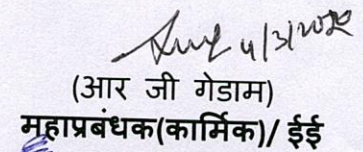 4/3/2020
(आर जी गेडाम)
महाप्रबंधक(कार्मिक)/ ईई